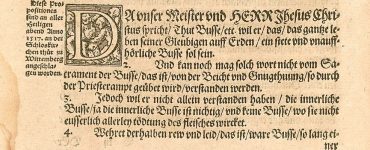 Diese Pro-
positiones
sind an aller
Heiligen
abend Anno
1517. an der
Schlosskir-
chen thür zu
Wittemberg
angeschla-
gen worden.
DA vnser Meister vnd HERR Jhesus Chri-
stus spricht / Thut Busse / etc. wil er / das / das gantze le-
ben seiner Gleubigen auff Erden / ein stete vnd vnauff-
hörliche Busse sol sein.
2. Vnd kan noch mag solch wort nicht vom Sa-
crament der Busse / das ist / von der Beicht vnd Gnugthuung / so durch
der Priesterampt geübet wird / verstanden werden.
3. Jedoch wil er nicht allein verstanden haben / die innerliche
Busse / ja die innerliche Busse ist nichtig / vnd keine Busse / wo sie nicht
eusserlich allerley tödtung des fleisches wircket.
4. Wehret derhalben rew vnd leid / das ist / ware Busse / so lang ei-
ner